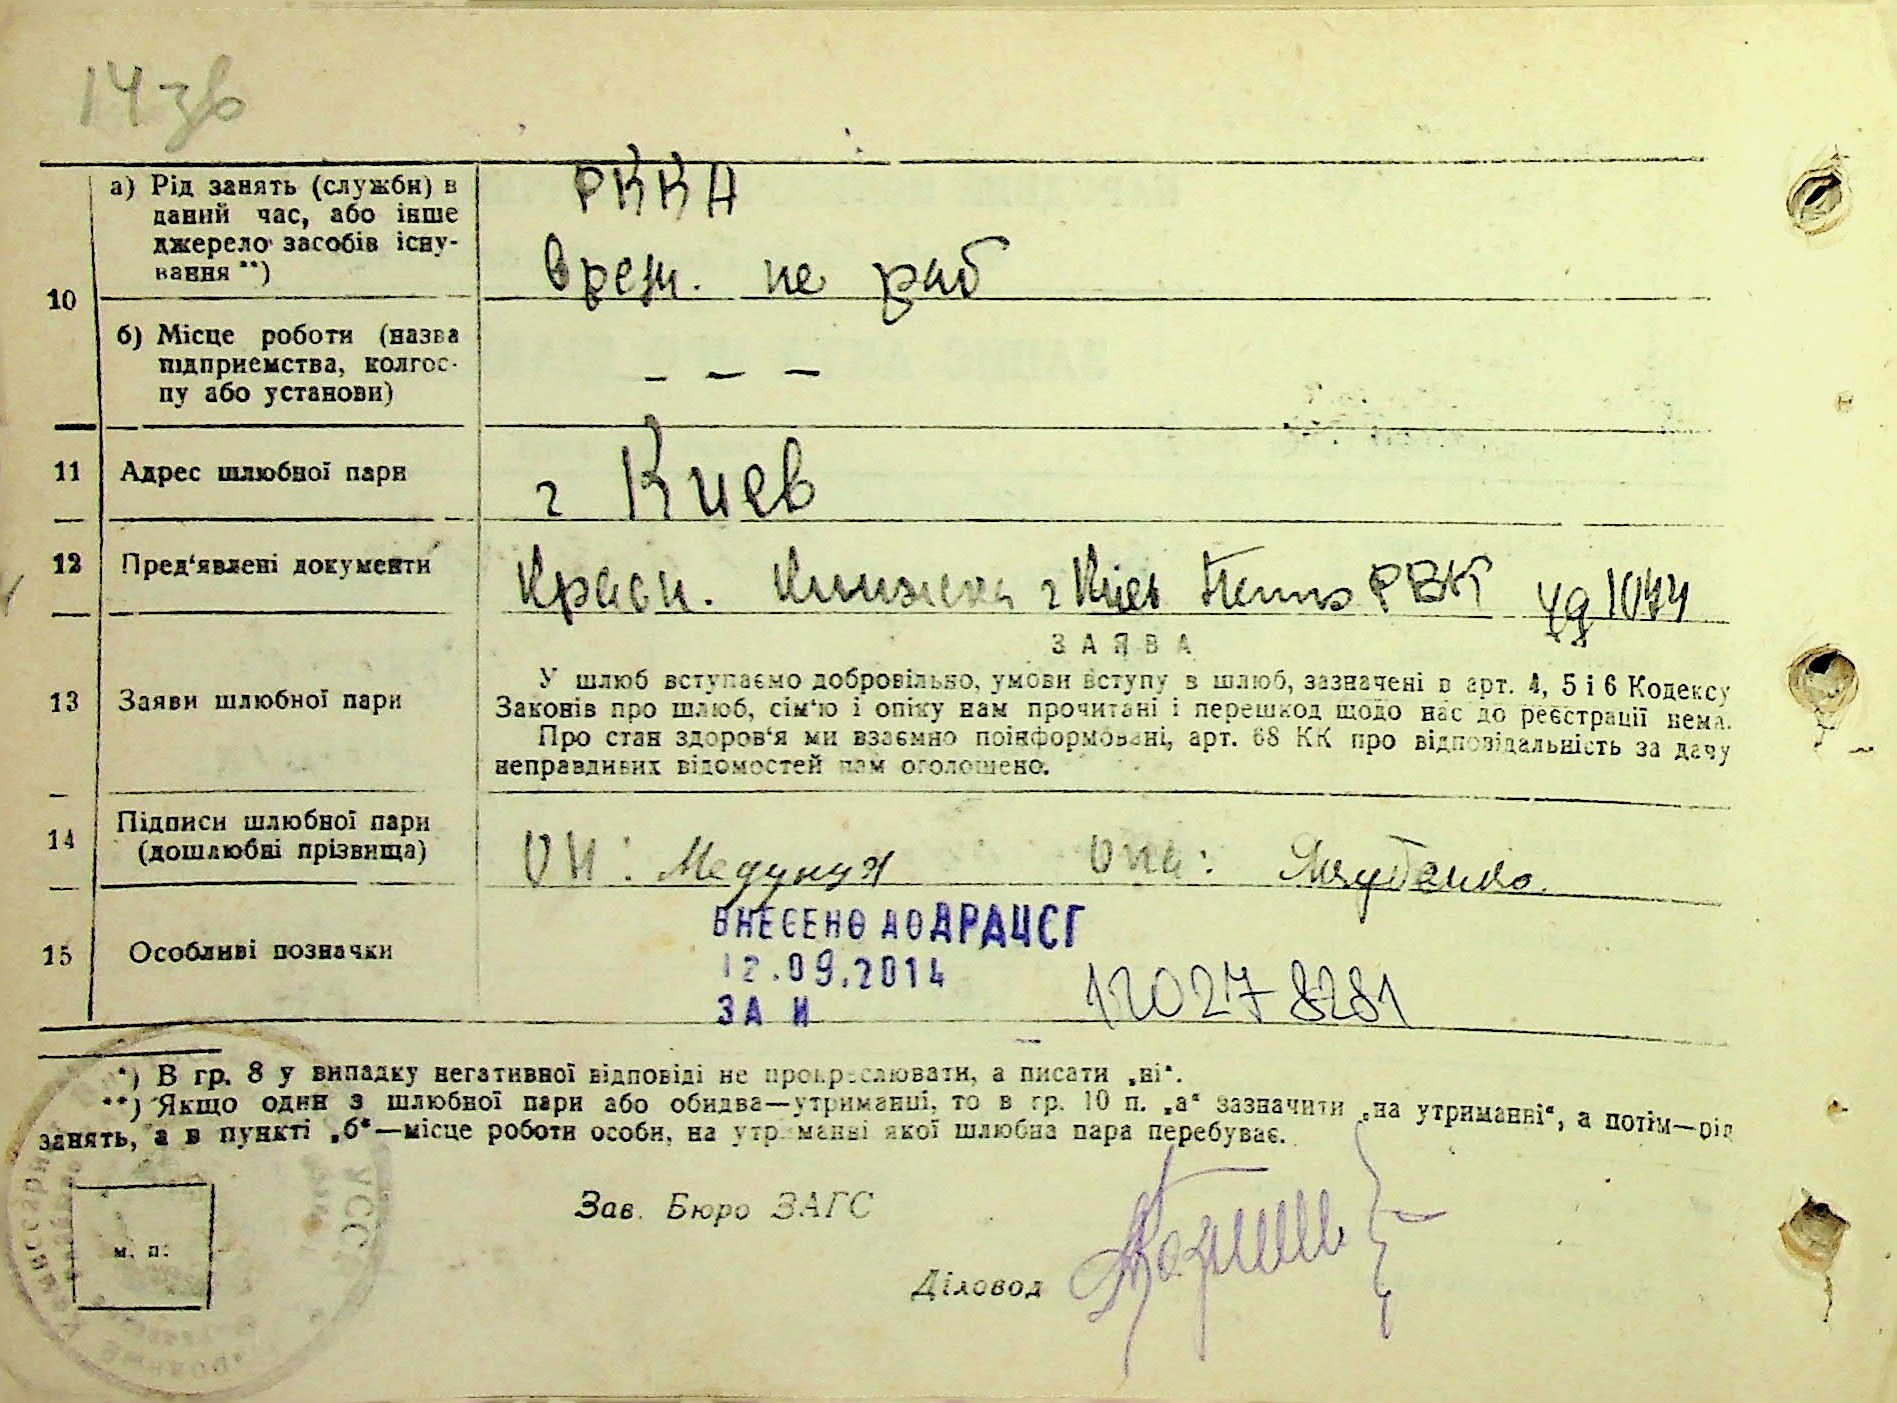 14 зв
а) Рід занять (служби) в
даний час, або інше
джерело засобів існу-
вання **)
РККА
Врем. не раб
10
б) Місце роботи (назва
підприємства, колгос-
пу або установи)
— — —
11 Адрес шлюбної пари г Киев
12 Пред'явлені документи Красн. Книжка г Киев РВК 1044
ЗАЯВА
13 Заяви шлюбної пари
У шлюб вступаємо добровільно, умови вступу в шлюб, зазначені в арт. 4, 5 і 6 Кодексу
Законів про шлюб, сім'ю і опіку нам прочитані і перешкод щодо нас до реєстрації нема.
Про стан здоров'я ми взаємно поінформовані, арт. 68 КК про відповідальність за дачу
неправдивих відомостей нам оголошено.
14 Підписи шлюбної пари
(дошлюбні прізвища)
Он: Медунця Она:
ВНЕСЕНО ДО ДРАЦСГ
15 Особливі позначки
12.09.2014
ЗА И 120278281
*) В гр. 8 у випадку негативної відповіді не прокреслювати, а писати „ні".
**) Якщо один з шлюбної пари або обидва—утриманці, то в гр. 10 п. „а" зазначити „на утриманні", а потім—рід
занять, а в пункті „б"—місце роботи особи, на утриманні якої шлюбна пара перебуває.
Зав. Бюро ЗАГС
м. п.
Діловод